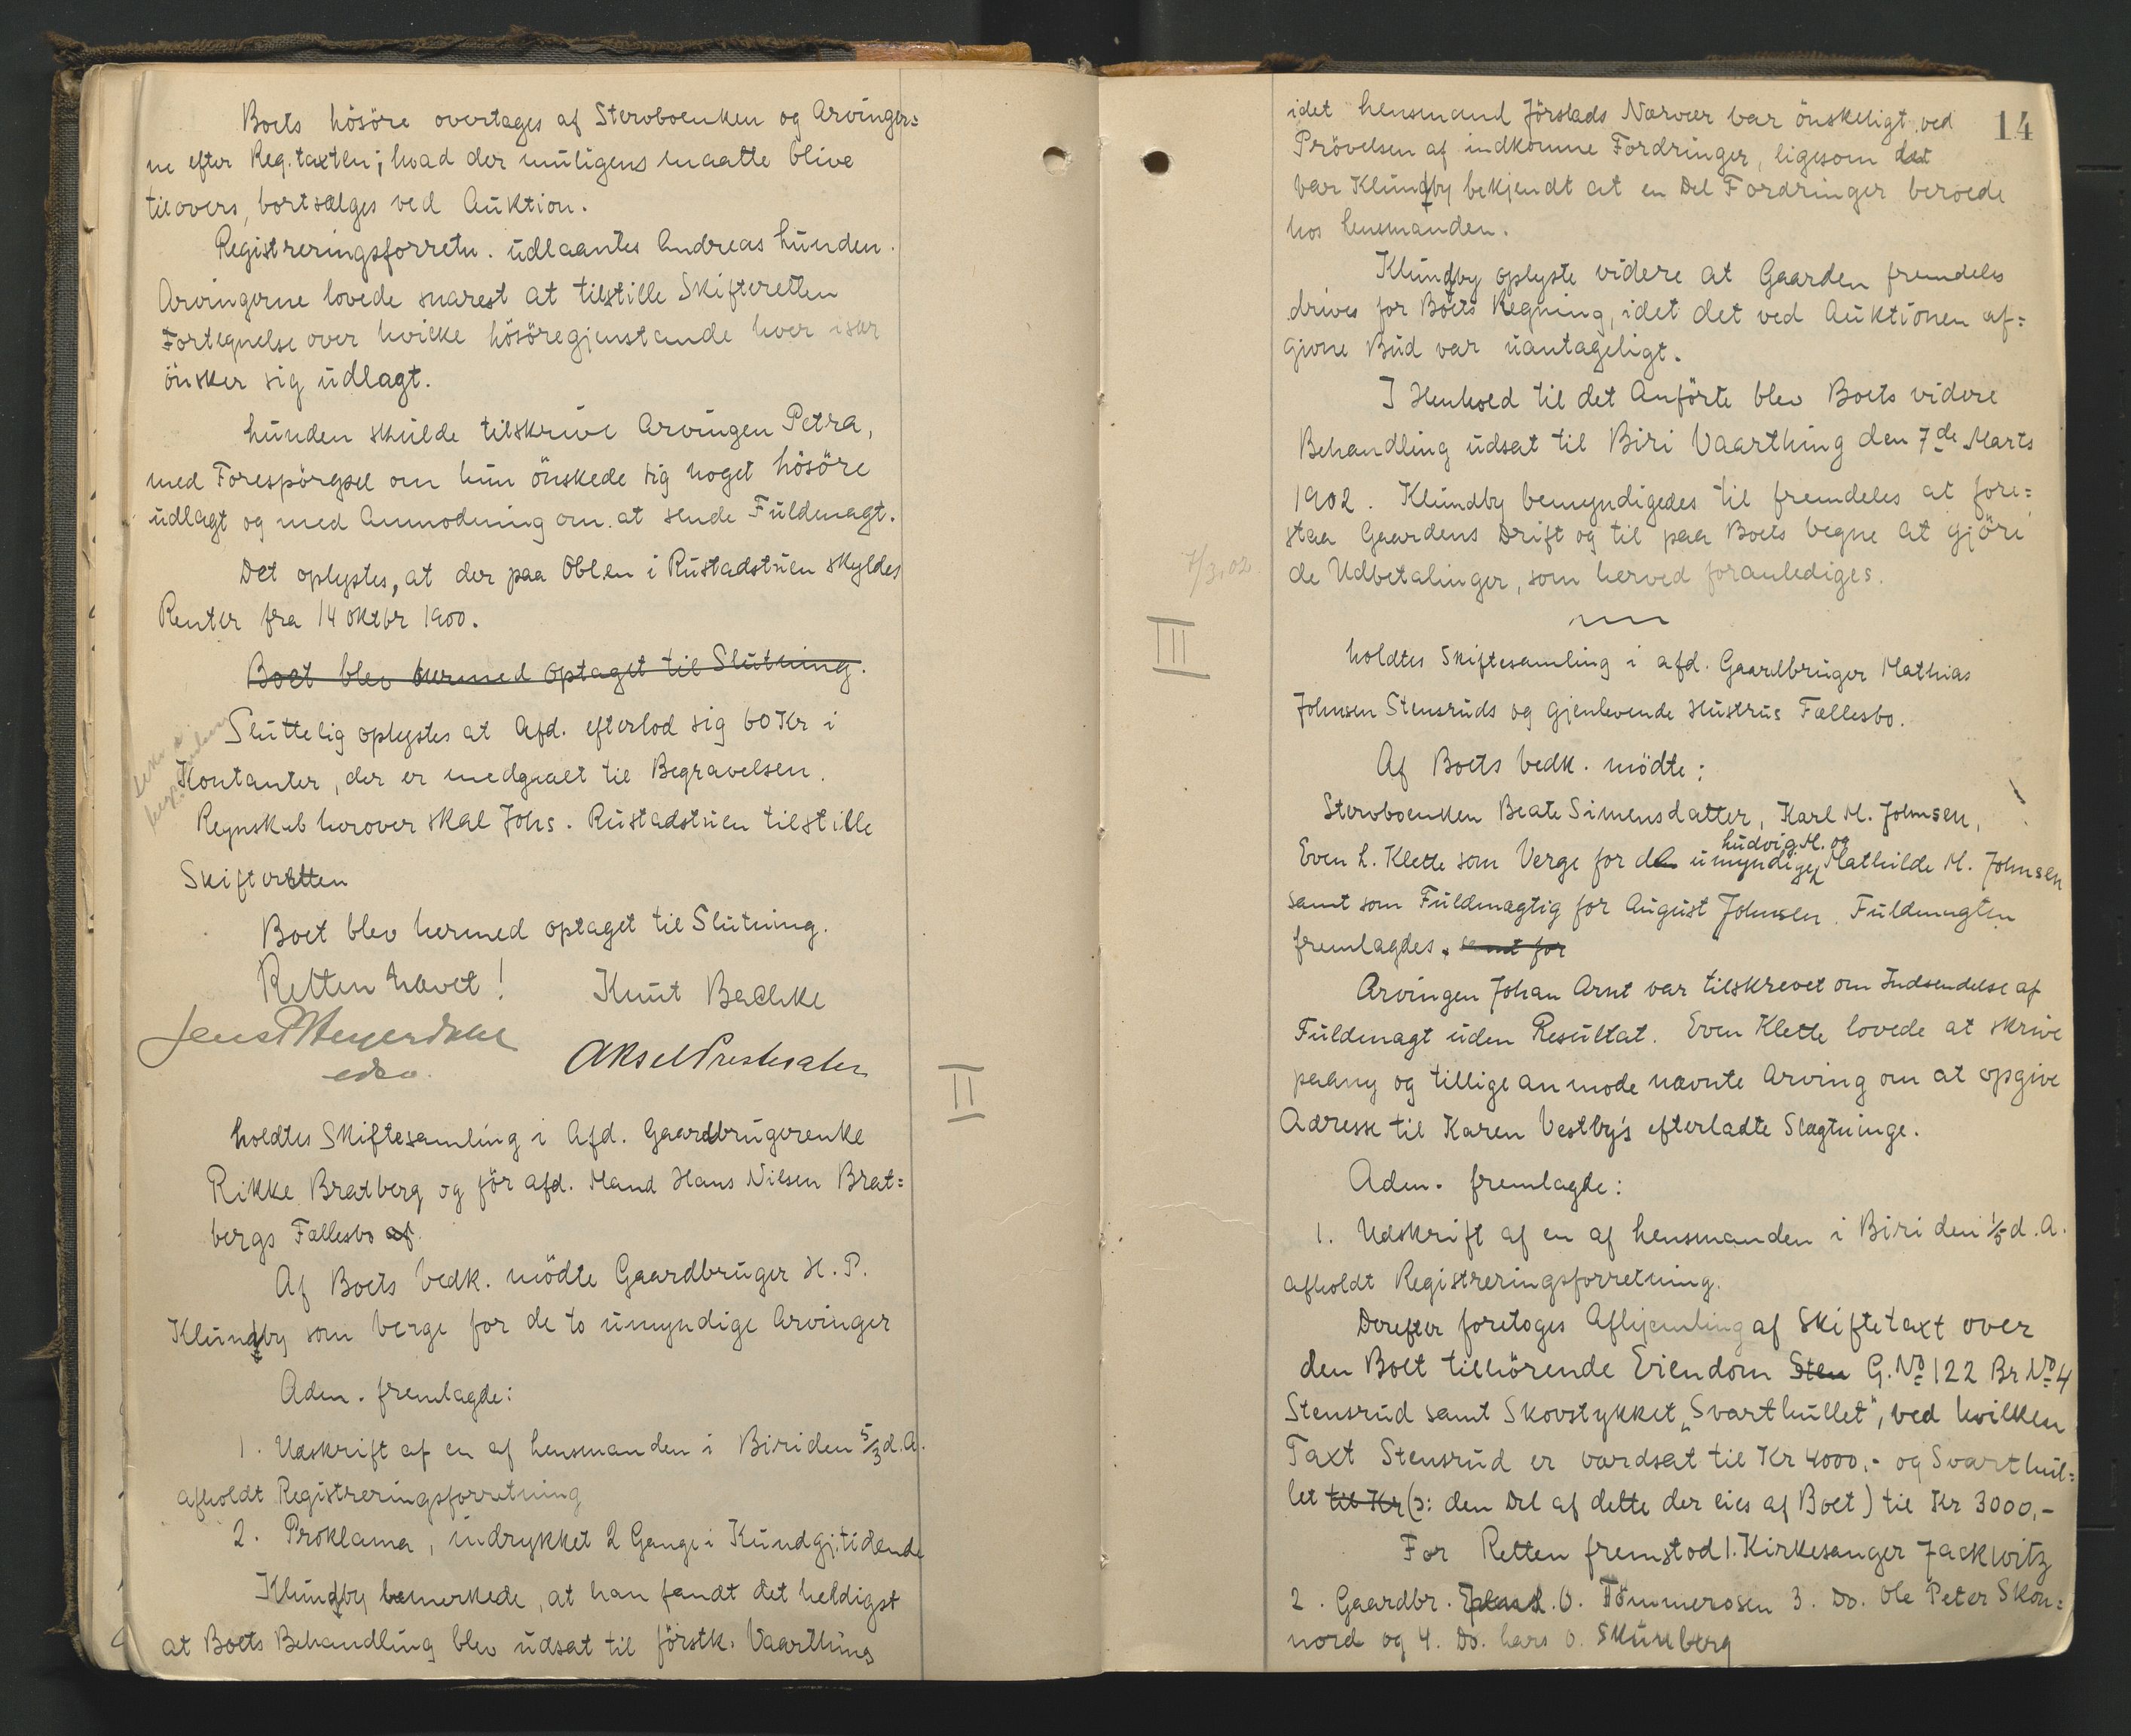 Boets Lösöre overtages af Stervboenken og Arvinger=
ne efter Reg. taxten; hvad der muligens maatte blive
tilovers, bortsælges ved Auktion.
Registreringsforretn. udlaantes Andreas Lunden.
Arvingerne lovede snarest at tilstille Skifteretten
Fortegnelse over hvilke Lösöregjenstande hver især
önsker sig udlagt.
Lunden skulde tilskrive Arvingen Petra,
med Forespörgsel om hun önskede sig noget Lösöre
udlagt og med Anmodning om at sende Fuldmagt.
Det oplystes, at der paa Obl.en i Rustadstuen skyldes
Renter fra 14 Oktbr 1900.
Boet blev hermed optaget til Slutning.
Sluttelig oplystes at Afd. efterlod sig 60 Kr i
Kontanter, der er medgaaet til Begravelsen.
Regnskab herover skal Johs. Rustadstuen tilstille
Skifteretten
Boet blev hermed optaget til Slutning.
Retten hævet!
Knut Bachke
Jens P Heyerdahl
edsv.
Aksel Prestesater
II
Holdtes Skiftesamling i Afd. Gaardbrugerenke
Rikke Bratberg og för afd. Mand Hans Nilsen Brat=
bergs Fællesbo af.
Af Boets Vedk. mödte Gaardbruger H. P.
Klundby som Verge for de to umyndige Arvinger
Adm. fremlagde:
1. Udskrift af en af Lensmanden i Biri den 5/3 d. A.
afholdt Registreringsforretning
2. Proklama, indrykket 2 Gange i Kundgj.tidende
Klundby bemerkede, at han fandt det heldigst
at Boets Behandling blev udsat til förstk. Vaarthing
14
idet Lensmand Jörstads Nærvær var önskeligt ved
Prövelsen af indkomne Fordringer, ligesom det
var Klundby bekjendt at en Del Fordringer beroede
hos Lensmanden.
Klundby oplyste videre at Gaarden fremdeles
drives for Boets Regning, idet det ved Auktionen af=
givne Bud var uantageligt.
I Henhold til det Anförte blev Boets videre
Behandling udsat til Biri Vaarthing den 7de Marts
1902. Klundby bemyndigedes til fremdeles at fore=
staa Gaardens Drift og til paa Boets Vegne at gjöre
de Udbetalinger, som herved foranlediges.
7/3.02
III
Holdtes Skiftesamling i afd. Gaardbruger Mathias
Johnsen Stensruds og gjenlevende Hustrus Fællesbo.
Af Boets Vedk. mödte:
Stervboenken Beate Simensdatter, Karl M. Johnsen,
Ludvig M. og
Even L. Klette som Verge for de umyndige Mathilde M. Johnsen
samt som Fuldmægtig for August Johnsen. Fuldmagten
fremlagdes. samt for
Arvingen Johan Arnt var tilskrevet om Indsendelse af
Fuldmagt uden Resultat. Even Klette lovede at skrive
paany og tillige anmode nævnte Arving om at opgive
Adresse til Karen Vestby's efterladte Slægtninge.
Adm. fremlagde:
1. Udskrift af en af Lensmanden i Biri den 1/5 d. A.
afholdt Registreringsforretning.
Derefter foretoges Afhjemling af Skiftetaxt over
den Boet tilhörende Eiendom Sten G. No 122 Br No 4
Stensrud samt Skovstykket "Svarthullet", ved hvilken
Taxt Stensrud er værdsat til Kr 4000,- og Svarthul=
let til Kr (ɔ: den Del af dette der eies af Boet) til Kr 3000,-
For Retten fremstod 1. Kirkesanger Jackwitz
2. Gaardbr. O. Tömmerosen 3. Do. Ole Peter Skon=
nord og 4. Do. Lars O. Skumberg